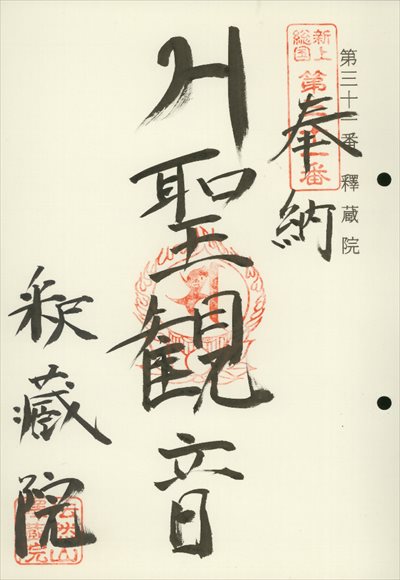 第三十一番 釋蔵院
新上総国
第三十一番
奉納
聖観音
釈蔵院